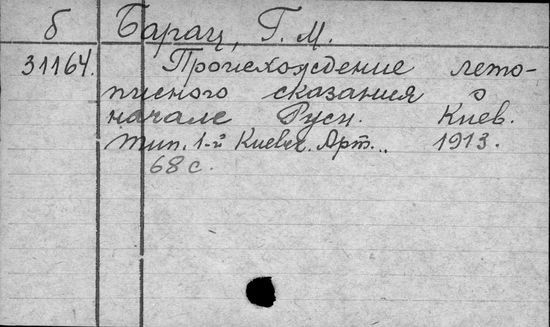 б Барац, Г. М.
31164. Происхождение лето-
писного сказания о
начале Руси. Киев.
тип. 1-й Киевск. Арт.. 1913.
68 с.